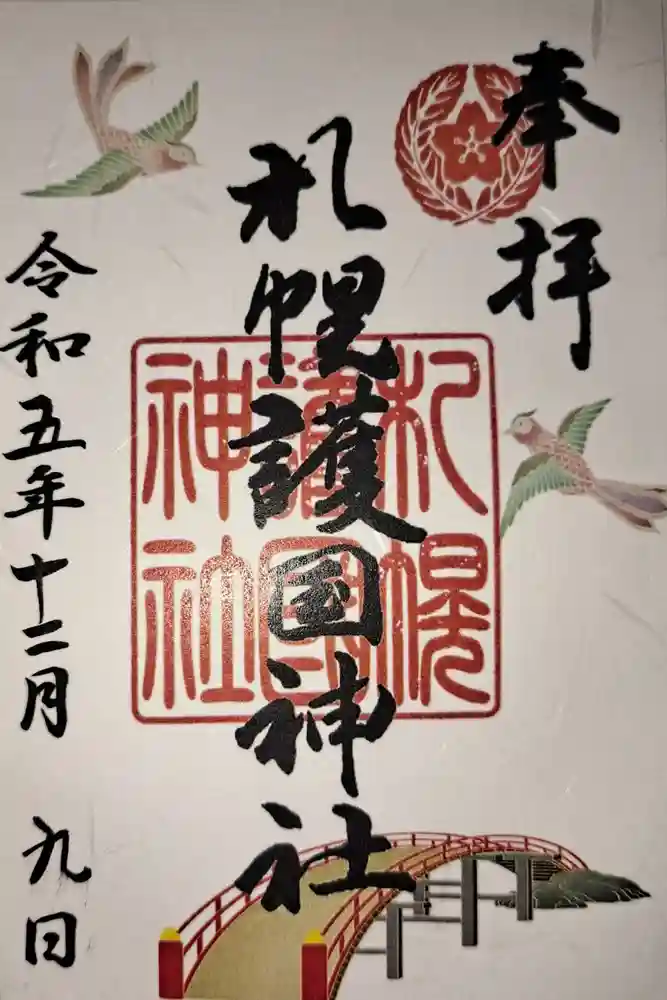 奉拝
札幌護国神社
札幌護國神社
令和五年十二月九日